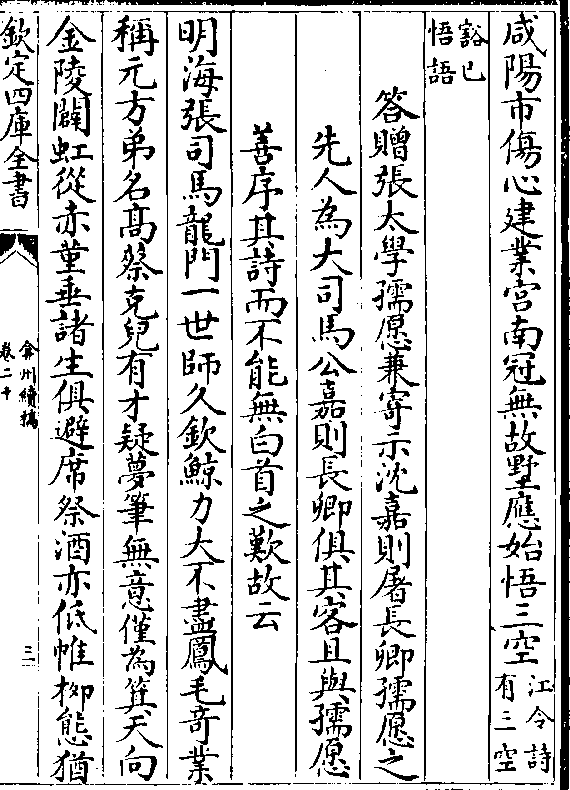 咸陽市傷心建業宫南冠無故墅應始悟三空江令詩有三空
豁已悟語
答贈張太學孺愿兼寄示沈嘉則屠長卿孺愿之
先人為大司馬公嘉則長卿俱其客且與孺愿
善序其詩而不能無白首之歎故云
明海張司馬龍門一世師久欽鯨力大不盡鳳毛竒業
稱元方弟名髙蔡克兒有才疑夢筆無意僅為箕天向
金陵闢虹從赤堇垂諸生俱避席祭酒亦低帷柳態猶
欽定四庫全書
弇州續稿
卷二十
三